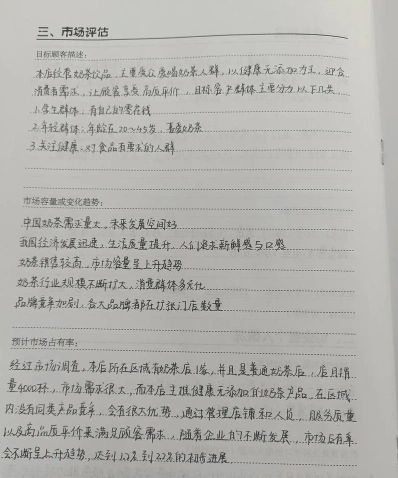 三、市场评估
目标顾客描述:
本店经营奶茶饮品,主要受众爱喝奶茶人群,以健康无添加为主,迎合
消费者需求,让顾客享受高质平价,目标客户群体主要分为以下几类
1.学生群体:有自己的零花钱
2.年轻群体:年龄在20~45岁,喜爱奶茶
3.关注健康:对食品有要求的人群
市场容量或变化趋势:
中国奶茶需求量大,未来发展空间好
我国经济发展迅速,生活质量提升,人们追求新鲜感与口感
奶茶销售较高,市场容量呈上升趋势
奶茶行业规模不断扩大,消费群体多元化
品牌竞争加剧,各大品牌都在扩张门店数量
预计市场占有率:
经过市场调查,本店所在区域有奶茶店1家,并且是普通奶茶店,店月销
量4000杯,市场需求很大,而本店主推健康无添加的奶茶产品,在区域
内没有同类产品竞争,会有很大优势,通过管理店铺和人员,服务质量
以及高品质平价来满足顾客需求,随着企业的不断发展,市场占有率
会不断呈上升趋势,达到12%到22%的稳步进展